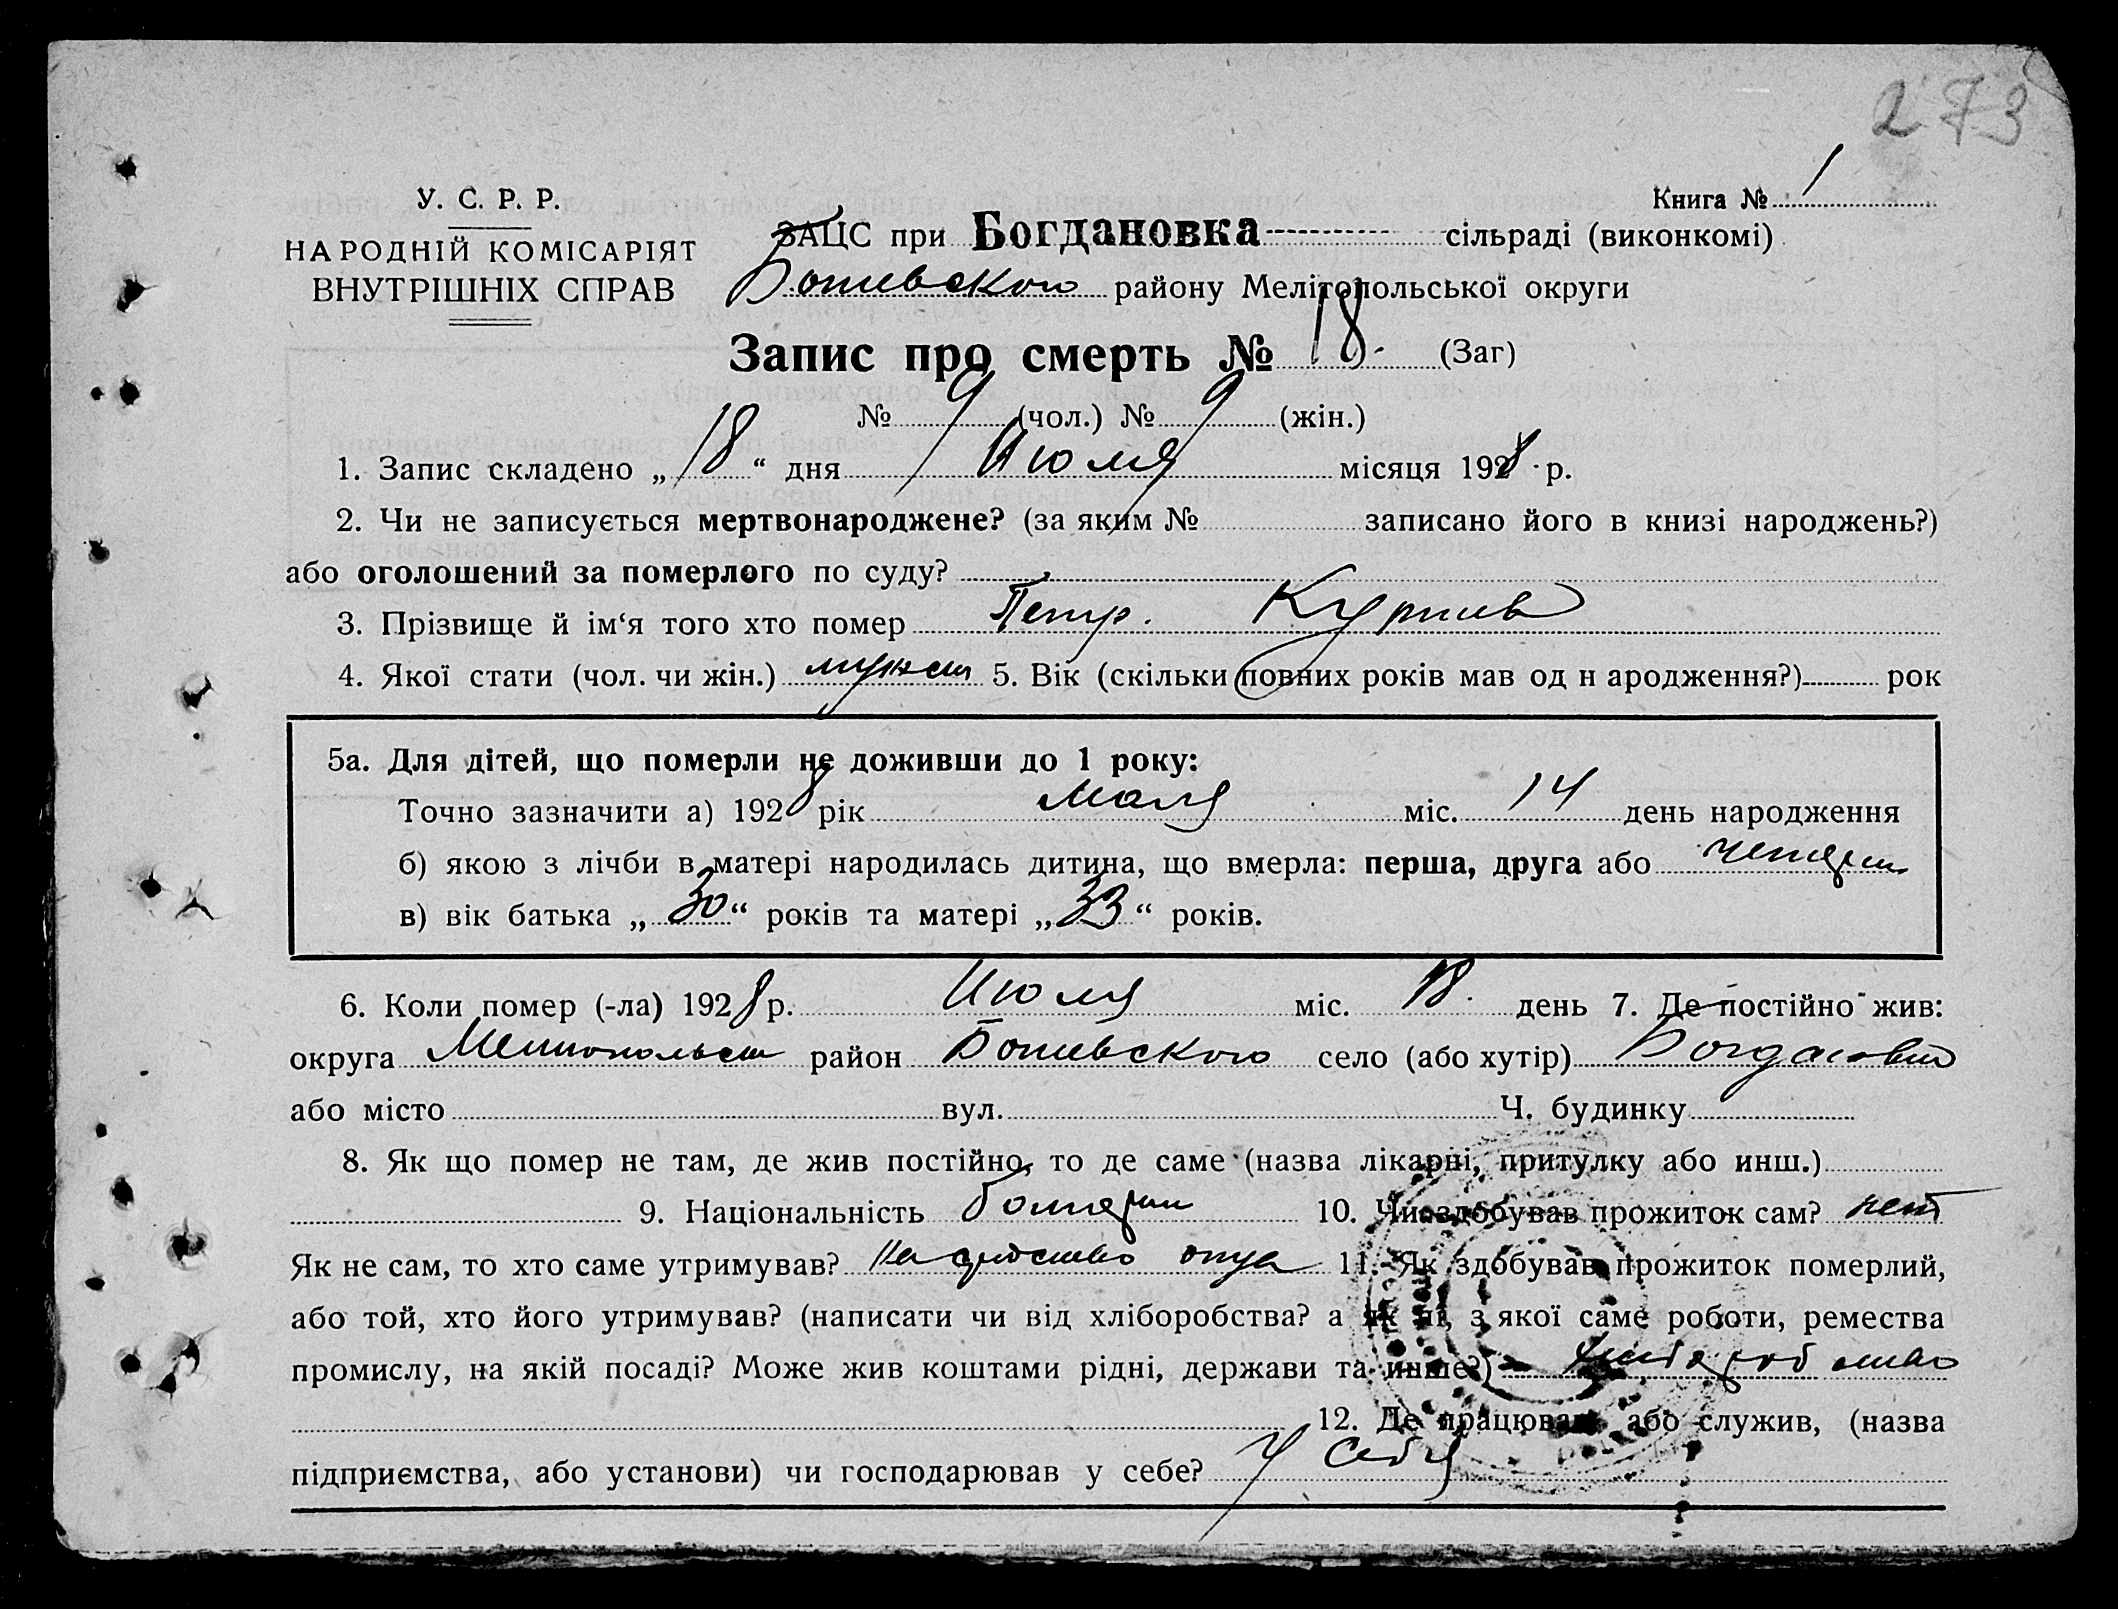 273
У. С. Р. Р.
НАРОДНІЙ КОМІСАРІЯТ
ВНУТРІШНІХ СПРАВ
Книга № 1
ЗАЦС при Богдановка сільраді (виконкомі)
Ботиевского району Мелітопольської округи
Запис про смерть № 18. (Заг)
№ 9 (чол.) № 9 (жін.)
1. Запис складено „ 18 “ дня Июля місяця 1928 р.
2. Чи не записується мертвонароджене? (за яким № записано його в книзі народжень?)
або оголошений за померлого по суду?
3. Прізвище й ім‘я того хто помер Петр.
4. Якої стати (чол. чи жін.) 5. Вік (скільки повних років мав од н ародження?) рок
5а. Для дітей, що померли не доживши до 1 року:
Точно зазначити а) 1928 рік міс. 14 день народження
б) якою з лічби в матері народилась дитина, що вмерла: перша, друга або
в) вік батька „ 30 “ років та матері „ 33 “ років.
6. Коли помер (-ла) 1928 р. Июля міс. 18. день 7. Де постійно жив:
округа район Ботиевского село (або хутір)
або місто вул. Ч. будинку
8. Як що помер не там, де жив постійно, то де саме (назва лікарні, притулку або инш.)
9. Національність 10. Чи здобував прожиток сам? нет
Як не сам, то хто саме утримував? На средства отца 11. Як здобував прожиток померлий,
або той, хто його утримував? (написати чи від хліборобства? а як ні, з якої саме роботи, ремества
промислу, на якій посаді? Може жив коштами рідні, держави та инше?)
12. Де працював або служив, (назва
підприємства, або установи) чи господарював у себе? У себя